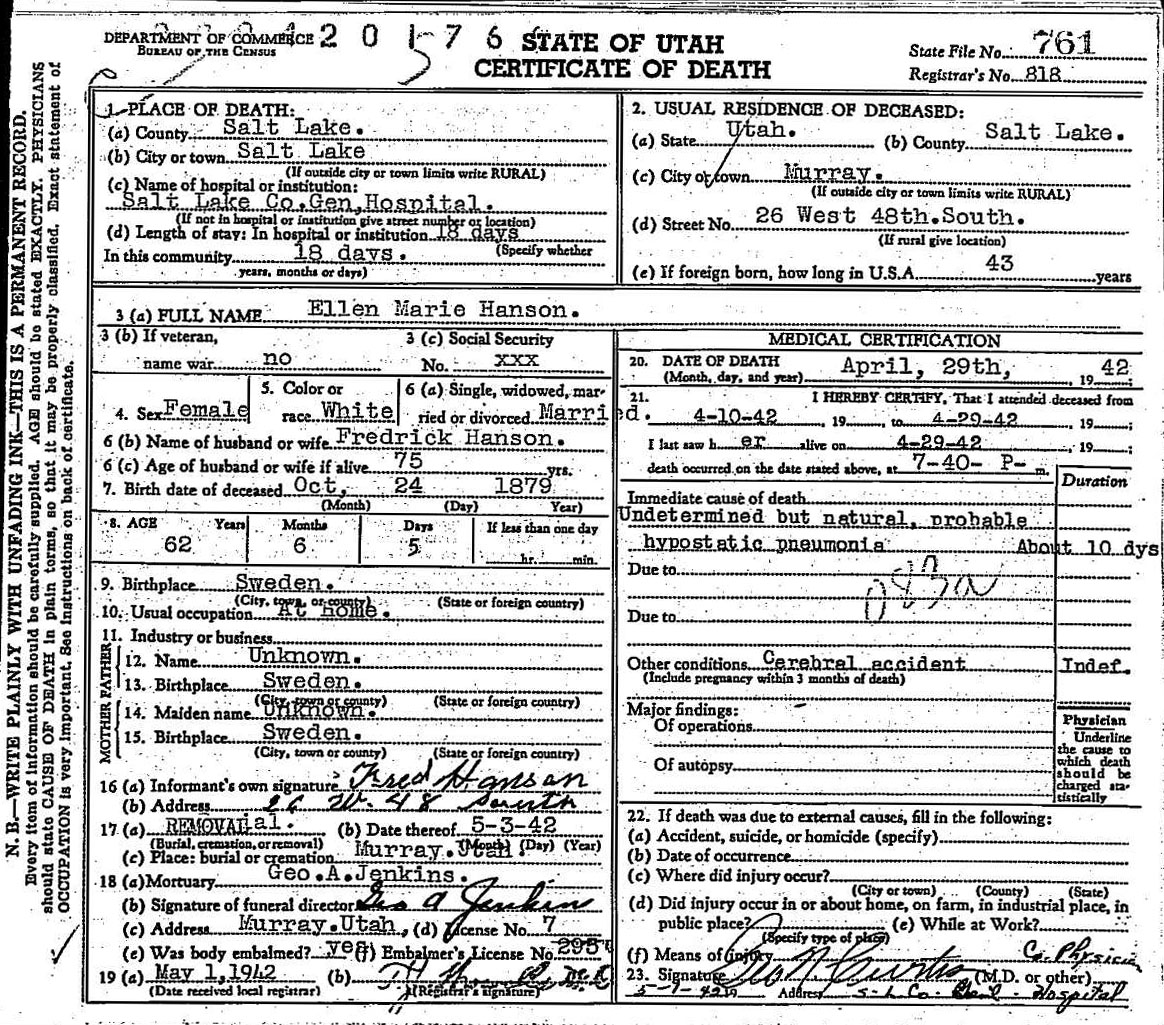 DEPARTMENT OF COMMERCE
BUREAU OF THE CENSUS
2 0 5 7 6
STATE OF UTAH
CERTIFICATE OF DEATH
State File No. 761
Registrar's No. 818
N. B.—WRITE PLAINLY WITH UNFADING INK—THIS IS A PERMANENT RECORD.
Every item of information should be carefully supplied. AGE should be stated EXACTLY. PHYSICIANS
should state CAUSE OF DEATH in plain terms, so that it may be properly classified. Exact statement of
OCCUPATION is very important. See instructions on back of certificate.
1. PLACE OF DEATH:
(a) County Salt Lake.
(b) City or town Salt Lake
(If outside city or town limits write RURAL)
(c) Name of hospital or institution:
Salt Lake Co.Gen,Hospital.
(If not in hospital or institution give street number or location)
(d) Length of stay: In hospital or institution 18 days
(Specify whether
In this community 18 days.
years, months or days)
2. USUAL RESIDENCE OF DECEASED:
(a) State Utah. (b) County Salt Lake.
(c) City or town Murray.
(If outside city or town limits write RURAL)
(d) Street No. 26 West 48th.South.
(If rural give location)
(e) If foreign born, how long in U.S.A. 43 years
3 (a) FULL NAME Ellen Marie Hanson.
3 (b) If veteran,
name war no
3 (c) Social Security
No. xxx
4. Sex Female
5. Color or
race White
6 (a) Single, widowed, mar-
ried or divorced Married.
6 (b) Name of husband or wife Fredrick Hanson.
6 (c) Age of husband or wife if alive 75 yrs.
7. Birth date of deceased Oct, 24 1879
(Month) (Day) Year)
8. AGE Years Months Days If less than one day
62 6 5 hr. min.
9. Birthplace Sweden.
(City, town, or county) (State or foreign country)
10. Usual occupation At home.
11. Industry or business
FATHER
12. Name Unknown.
13. Birthplace Sweden.
(City, town or county) (State or foreign country)
MOTHER
14. Maiden name Unknown.
15. Birthplace Sweden.
(City, town or county) (State or foreign country)
16 (a) Informant's own signature Fred Hanson
(b) Address 26 W. 48 South
17 (a) REMOVAL ial. (b) Date thereof 5-3-42
(Burial, cremation, or removal) (Month) (Day) (Year)
(c) Place: burial or cremation Murray.Utah.
18 (a) Mortuary Geo.A.Jenkins.
(b) Signature of funeral director Geo A Jenkins
(c) Address Murray.Utah. (d) License No. 7
(e) Was body embalmed? yes (f) Embalmer's License No. 295
19 (a) May 1,1942 (b)
(Date received local registrar) (Registrar's signature)
MEDICAL CERTIFICATION
20. DATE OF DEATH April, 29th, 19 42;
(Month, day, and year)
21. I HEREBY CERTIFY, That I attended deceased from
4-10-42, 19 , to 4-29-42, 19 ;
I last saw h er alive on 4-29-42, 19 ;
death occurred on the date stated above, at 7-40- P- m.
Duration
Immediate cause of death
Undetermined but natural, probable
hypostatic pneumonia About 10 dys
Due to
Due to
Other conditions Cerebral accident Indef.
(Include pregnancy within 3 months of death)
Major findings:
Of operations
Of autopsy
Physician
Underline
the cause to
which death
should be
charged sta-
tistically
22. If death was due to external causes, fill in the following:
(a) Accident, suicide, or homicide (specify)
(b) Date of occurrence
(c) Where did injury occur?
(City or town) (County) (State)
(d) Did injury occur in or about home, on farm, in industrial place, in
public place? (e) While at Work?
(Specify type of place)
(f) Means of injury Co. Physician
23. Signature Curtis (M.D. or other)
5-1-42 19 Address S-L Co. Genl. Hospital